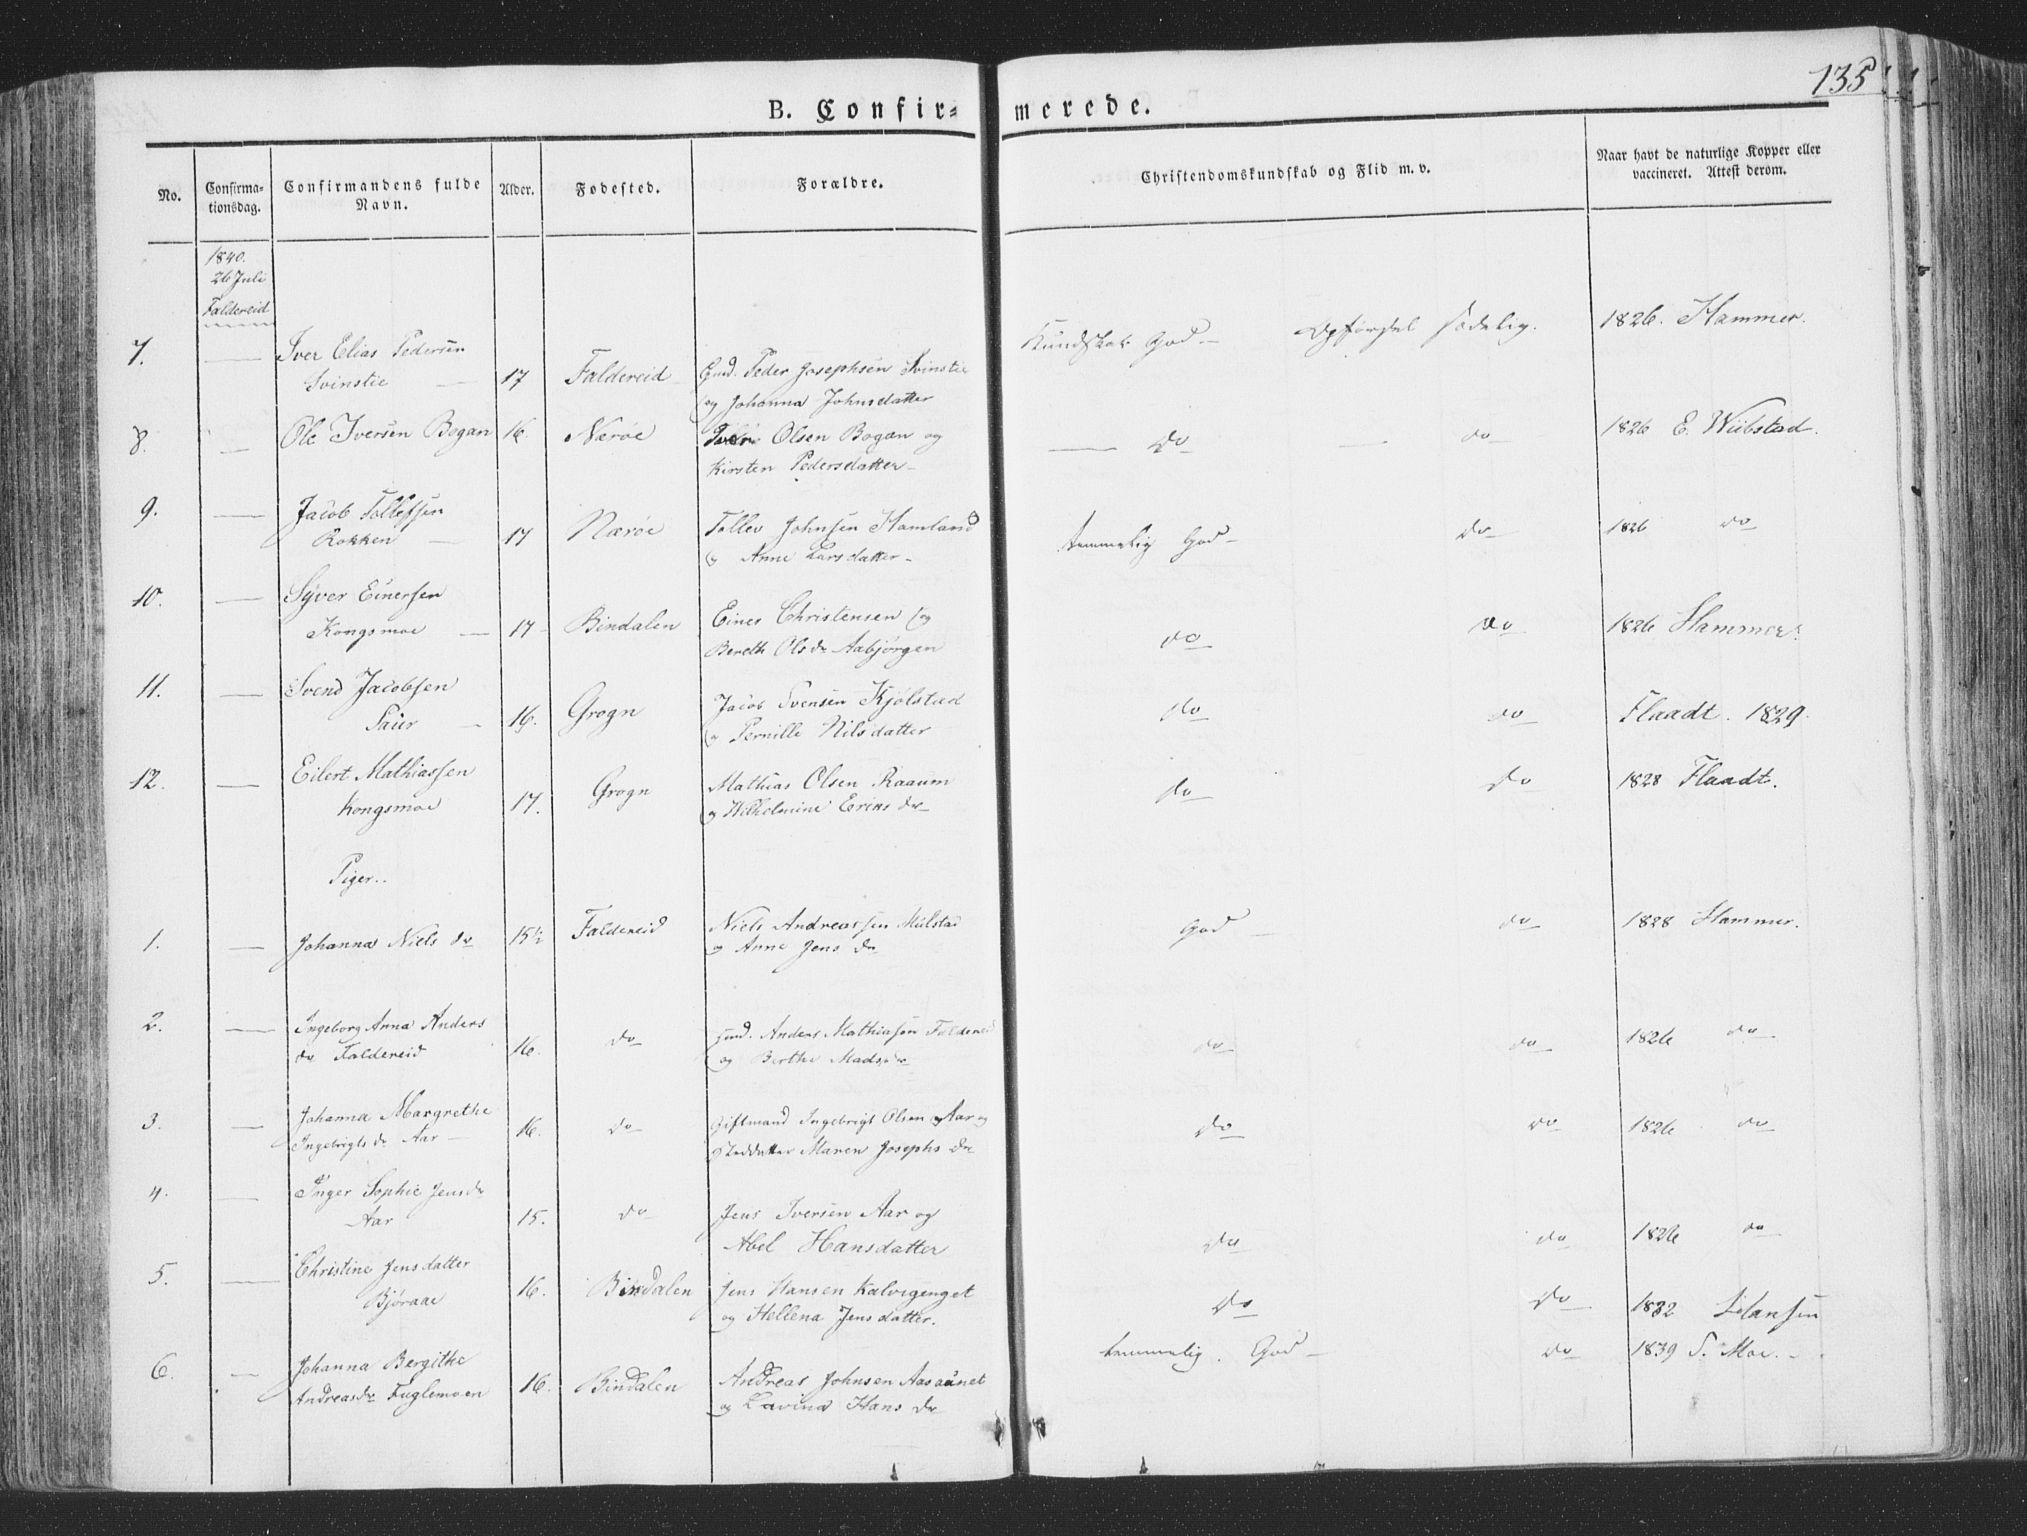 135
B. Confir= merede.
No. Confirma- tionsdag. Confirmandens fulde Navn. Alder. Fødested. Forældre. Christendomskundskab og Flid m. v. Naar havt de naturlige Kopper eller vaccineret. Attest derom.
1840.
26 Juli
Faldereid
7. Iver Elias Pedersen Kundskab God – Opførsel sædelig. 1826. Hammer.
Svinstie — 17 Faldereid Gmd. Peder Josephsen Svinstie
og Johanna Johnsdatter
8. — Ole Iversen Bogan 16. Nærøe Iver Olsen Bogan og — do — do 1826 E. Wiibstad.
Kirsten Pedersdatter –
9. — Jacob Tollefsen Tollev Johnsen Hamland
Rokken — 17 Nærøe og Anne Larsdatter – temmelig God – do 1826 do
10. — Syver Einersen Einer Christensen og
Kongsmoe — 17 – Bindalen Bereth Olsdr Aabjørgen do do 1826 Hammer.
11. — Svend Jacobsen Jacob Svensen Kjølstad
Saur — 16. Grogn og Pernille Nilsdatter do do Flaadt. 1829.
12. — Eilert Mathiassen Mathias Olsen Raaum
Kongsmoe 17. Grogn og Wilhelmine Erins dr – do do 1828 Flaadt.
Piger..
1. — Johanna Niels dr 15½ Faldereid Niels Andreassen Mulstad God — do 1828 Hammer.
og Anne Jens dr
2. — Ingeborg Anna Anders Gmd. Anders Mathiasen Faldereid
dr Faldereid 16. do og Berthe Madsdr do do 1826 do
3. — Johanna Margrethe Giftmand Ingebrigt Olsen Aar og
Ingebrigts dr Aar — 16. do Maren Josephs dr do do 1826 do
4. — Inger Sophie Jensdr
Aar 15. do Jens Iversen Aar og
Abel Hansdatter do do 1826 do
5. — Christine Jensdatter
Bjøraae 16. Bindalen Jens Hansen Kalvegenget do do 1832 Hansen
og Hellena Jensdatter.
6. — Johanna Bergithe temmelig. God – do 1839 S. Moe. –
Andreasdr Fuglemoen 16. Bindalen Andreas Johnsen Aasaunet
og Lavina Hans dr